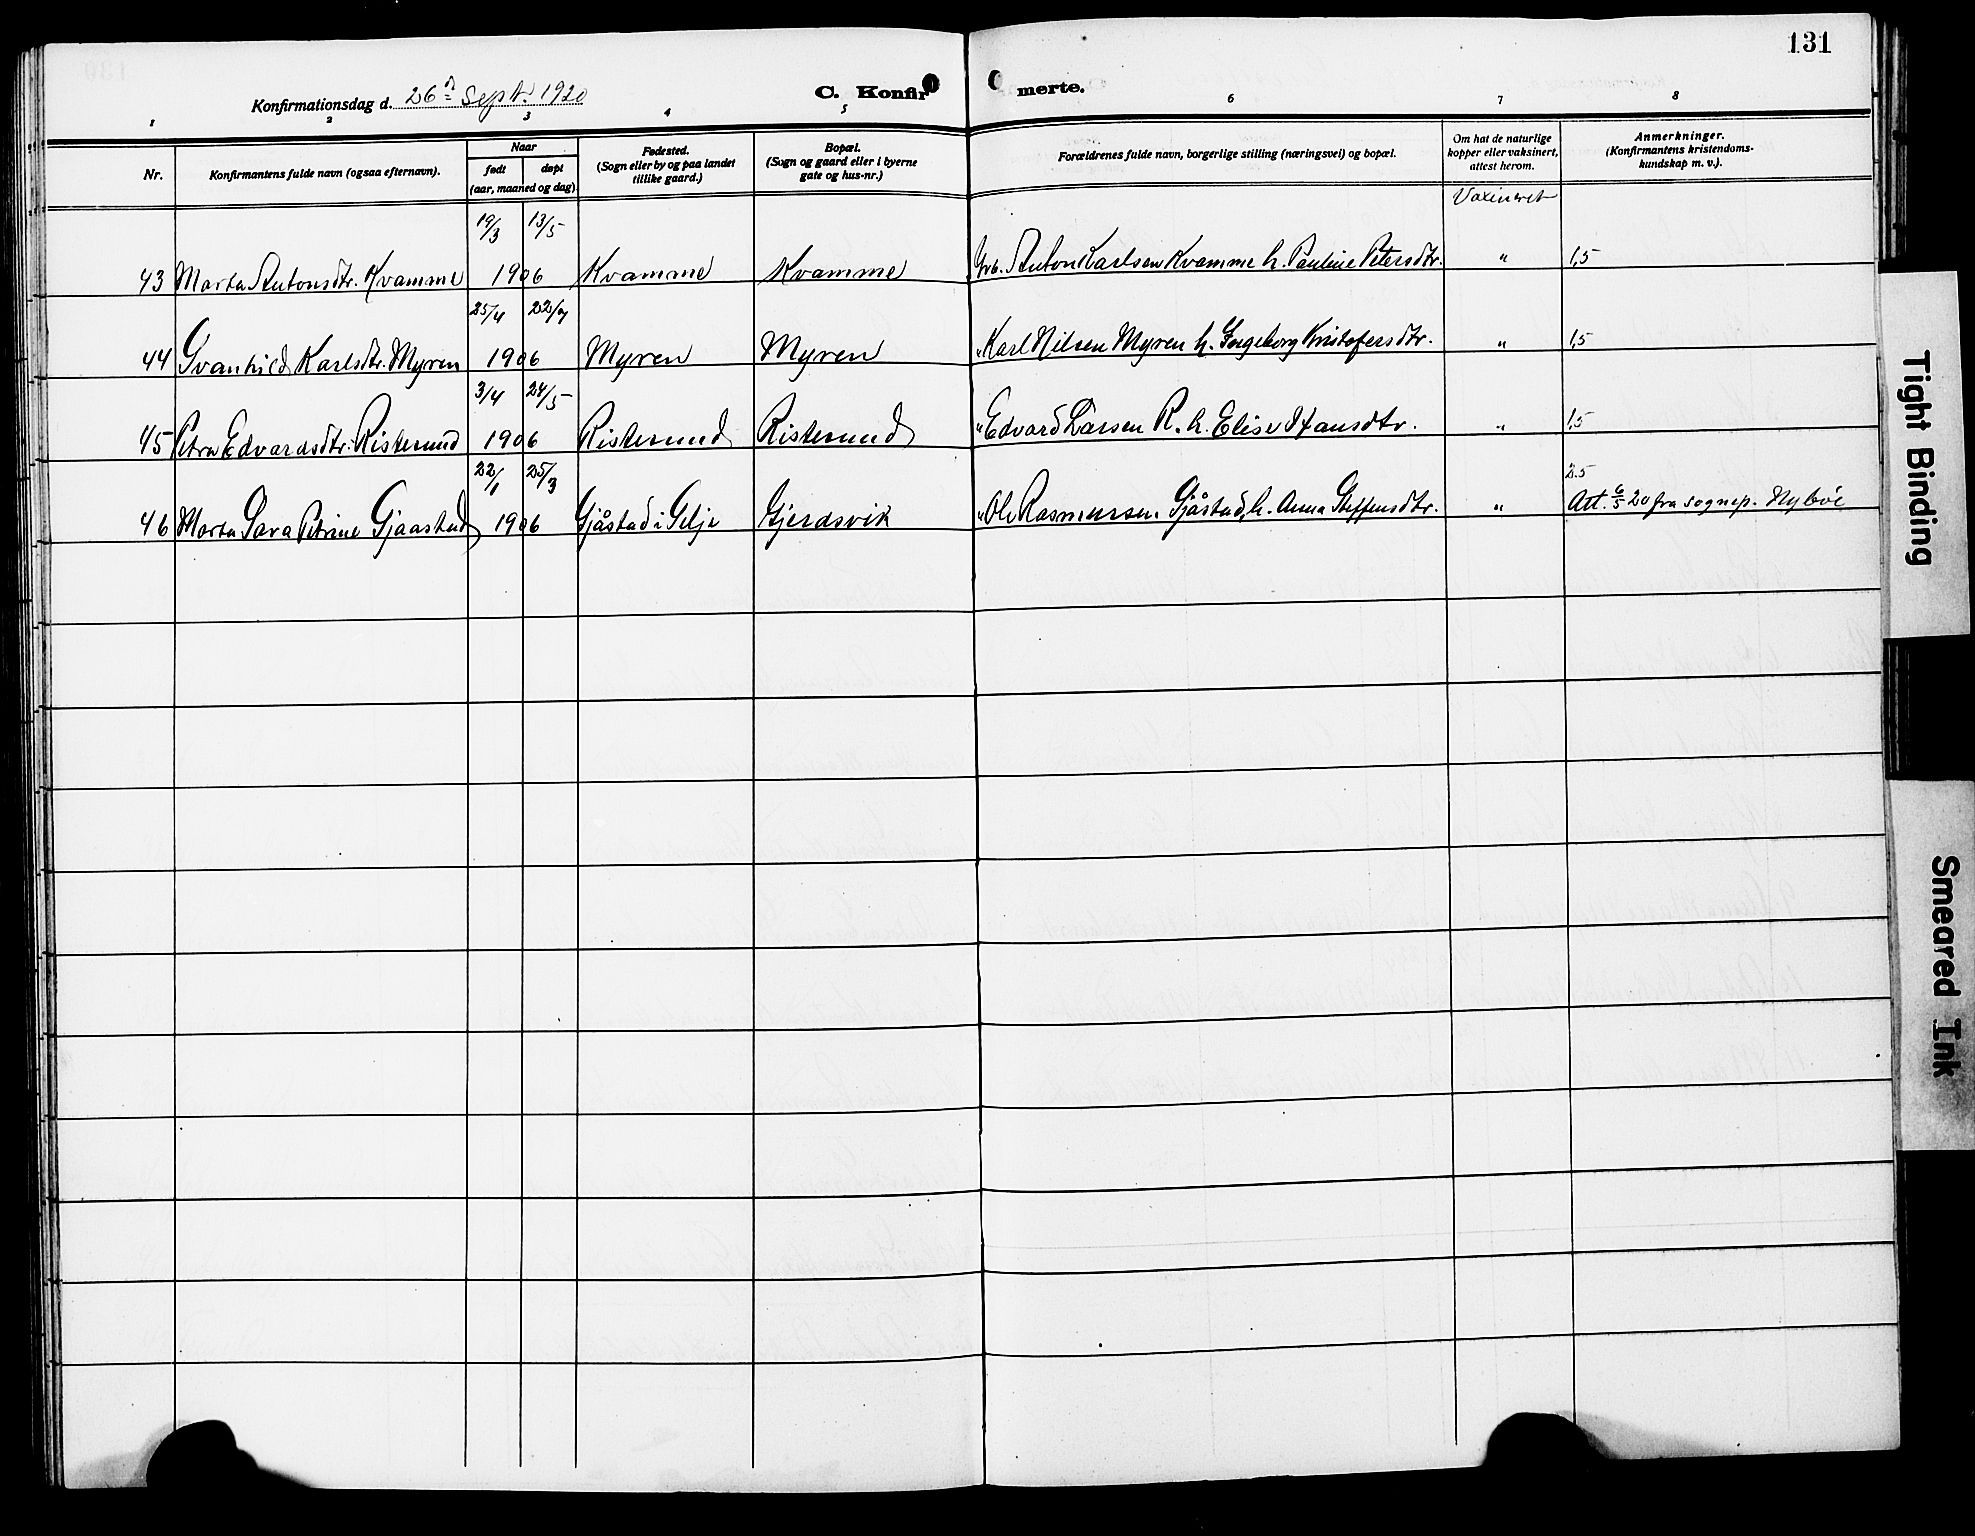 131
Konfirmationsdag d. 26de Sept. 1920
C. Konfir merte.
1 2 3 4 5 6 7 8
Nr.
Konfirmantens fulde navn (ogsaa efternavn).
Naar
født døpt
(aar, maaned og dag)
Fødested.
(Sogn eller by og paa landet
tillike gaard.)
Bopæl.
(Sogn og gaard eller i byerne
gate og hus-nr.)
Forældrenes fulde navn, borgerlige stilling (næringsvei) og bopæl.
Om hat de naturlige
kopper eller vaksinert,
attest herom.
Anmerkninger.
(Konfirmantens kristendoms-
kundskap m. v.).
Vaxineret
19/3 13/5
43 Marta Antonsdtr. Kvamme 1906 Kvamme Kvamme Grb. Anton Karlsen Kvamme h. Pauline Petersdtr. " 1,5
25/4 22/7
44 Svanhild Karlsdtr. Myren 1906 Myren Myren " Karl Nilsen Myren h. Ingeborg Kristofersdtr. " 1,5
3/4 24/5
45 Petra Edvardsdtr. Ristesund 1906 Ristesund Ristesund " Edvard Larsen R. h. Elise Hansdtr. " 1,5
22/1 25/3 2.5
46 Marta Sara Petrine Gjaastad 1906 Gjåstad i Selje Gjerdsvik " Ole Rasmussen Gjåstad, h. Anna Steffensdtr. " Att. 6/5 20 fra sognep. Nybøe
Tight Binding
Smeared Ink